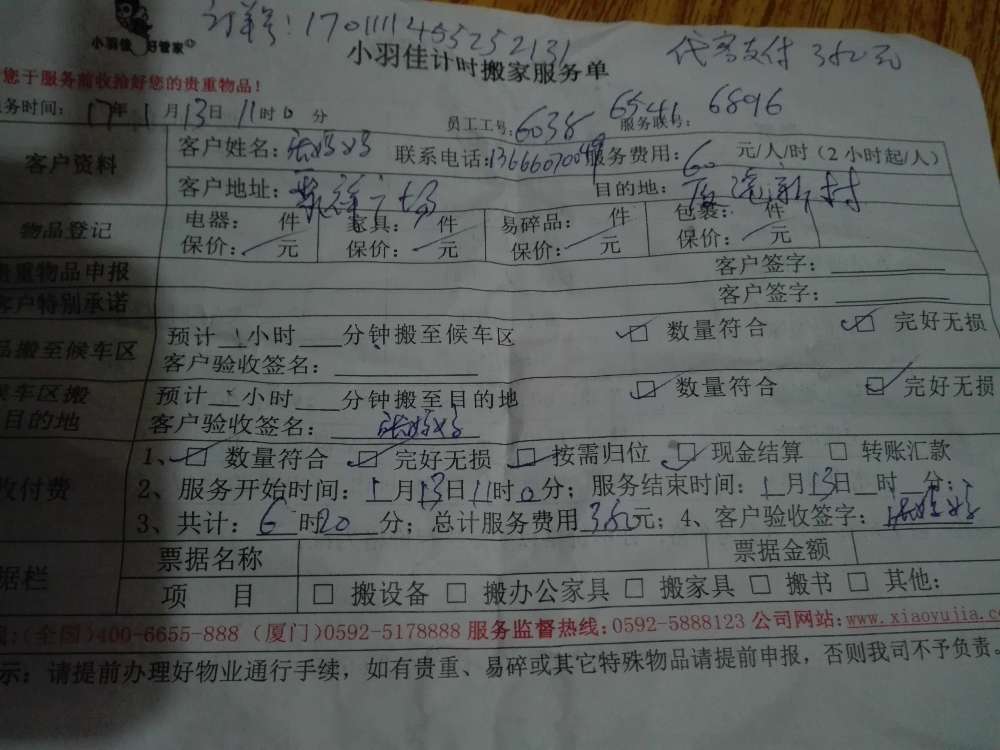 订单号: 1701111455252131
小羽佳 好管家
小羽佳计时搬家服务单
代客支付 380元
您于服务前收拾好您的贵重物品!
务时间: 17年1月13日11时0分 员工工号: 6038 6541 6896 服务联号:
客户资料 客户姓名: 联系电话: 服务费用: 60 元/人/时 (2小时起/人)
客户地址: 广场 目的地: 新村
物品登记 电器: 件 家具: 件 易碎品: 件 包裹: 件
保价: 元 保价: 元 保价: 元 保价: 元
贵重物品申报 客户签字:
客户特别承诺 客户签字:
品搬至候车区 预计 小时 分钟搬至候车区 □ 数量符合 □ 完好无损
客户验收签名:
候车区搬 预计 小时 分钟搬至目的地 □ 数量符合 □ 完好无损
目的地 客户验收签名:
1、□ 数量符合 □ 完好无损 □ 按需归位 □ 现金结算 □ 转账汇款
收付费 2、服务开始时间: 1月13日11时0分; 服务结束时间: 1月13日 时 分;
3、共计: 6时20分; 总计服务费用380元; 4、客户验收签字:
据栏 票据名称 票据金额
项 目 □ 搬设备 □ 搬办公家具 □ 搬家具 □ 搬书 □ 其他:
(全国)400-6655-888 (厦门)0592-5178888 服务监督热线: 0592-5888123 公司网站: www.xiaoyujia.c
示: 请提前办理好物业通行手续, 如有贵重、易碎或其它特殊物品请提前申报, 否则我司不予负责。